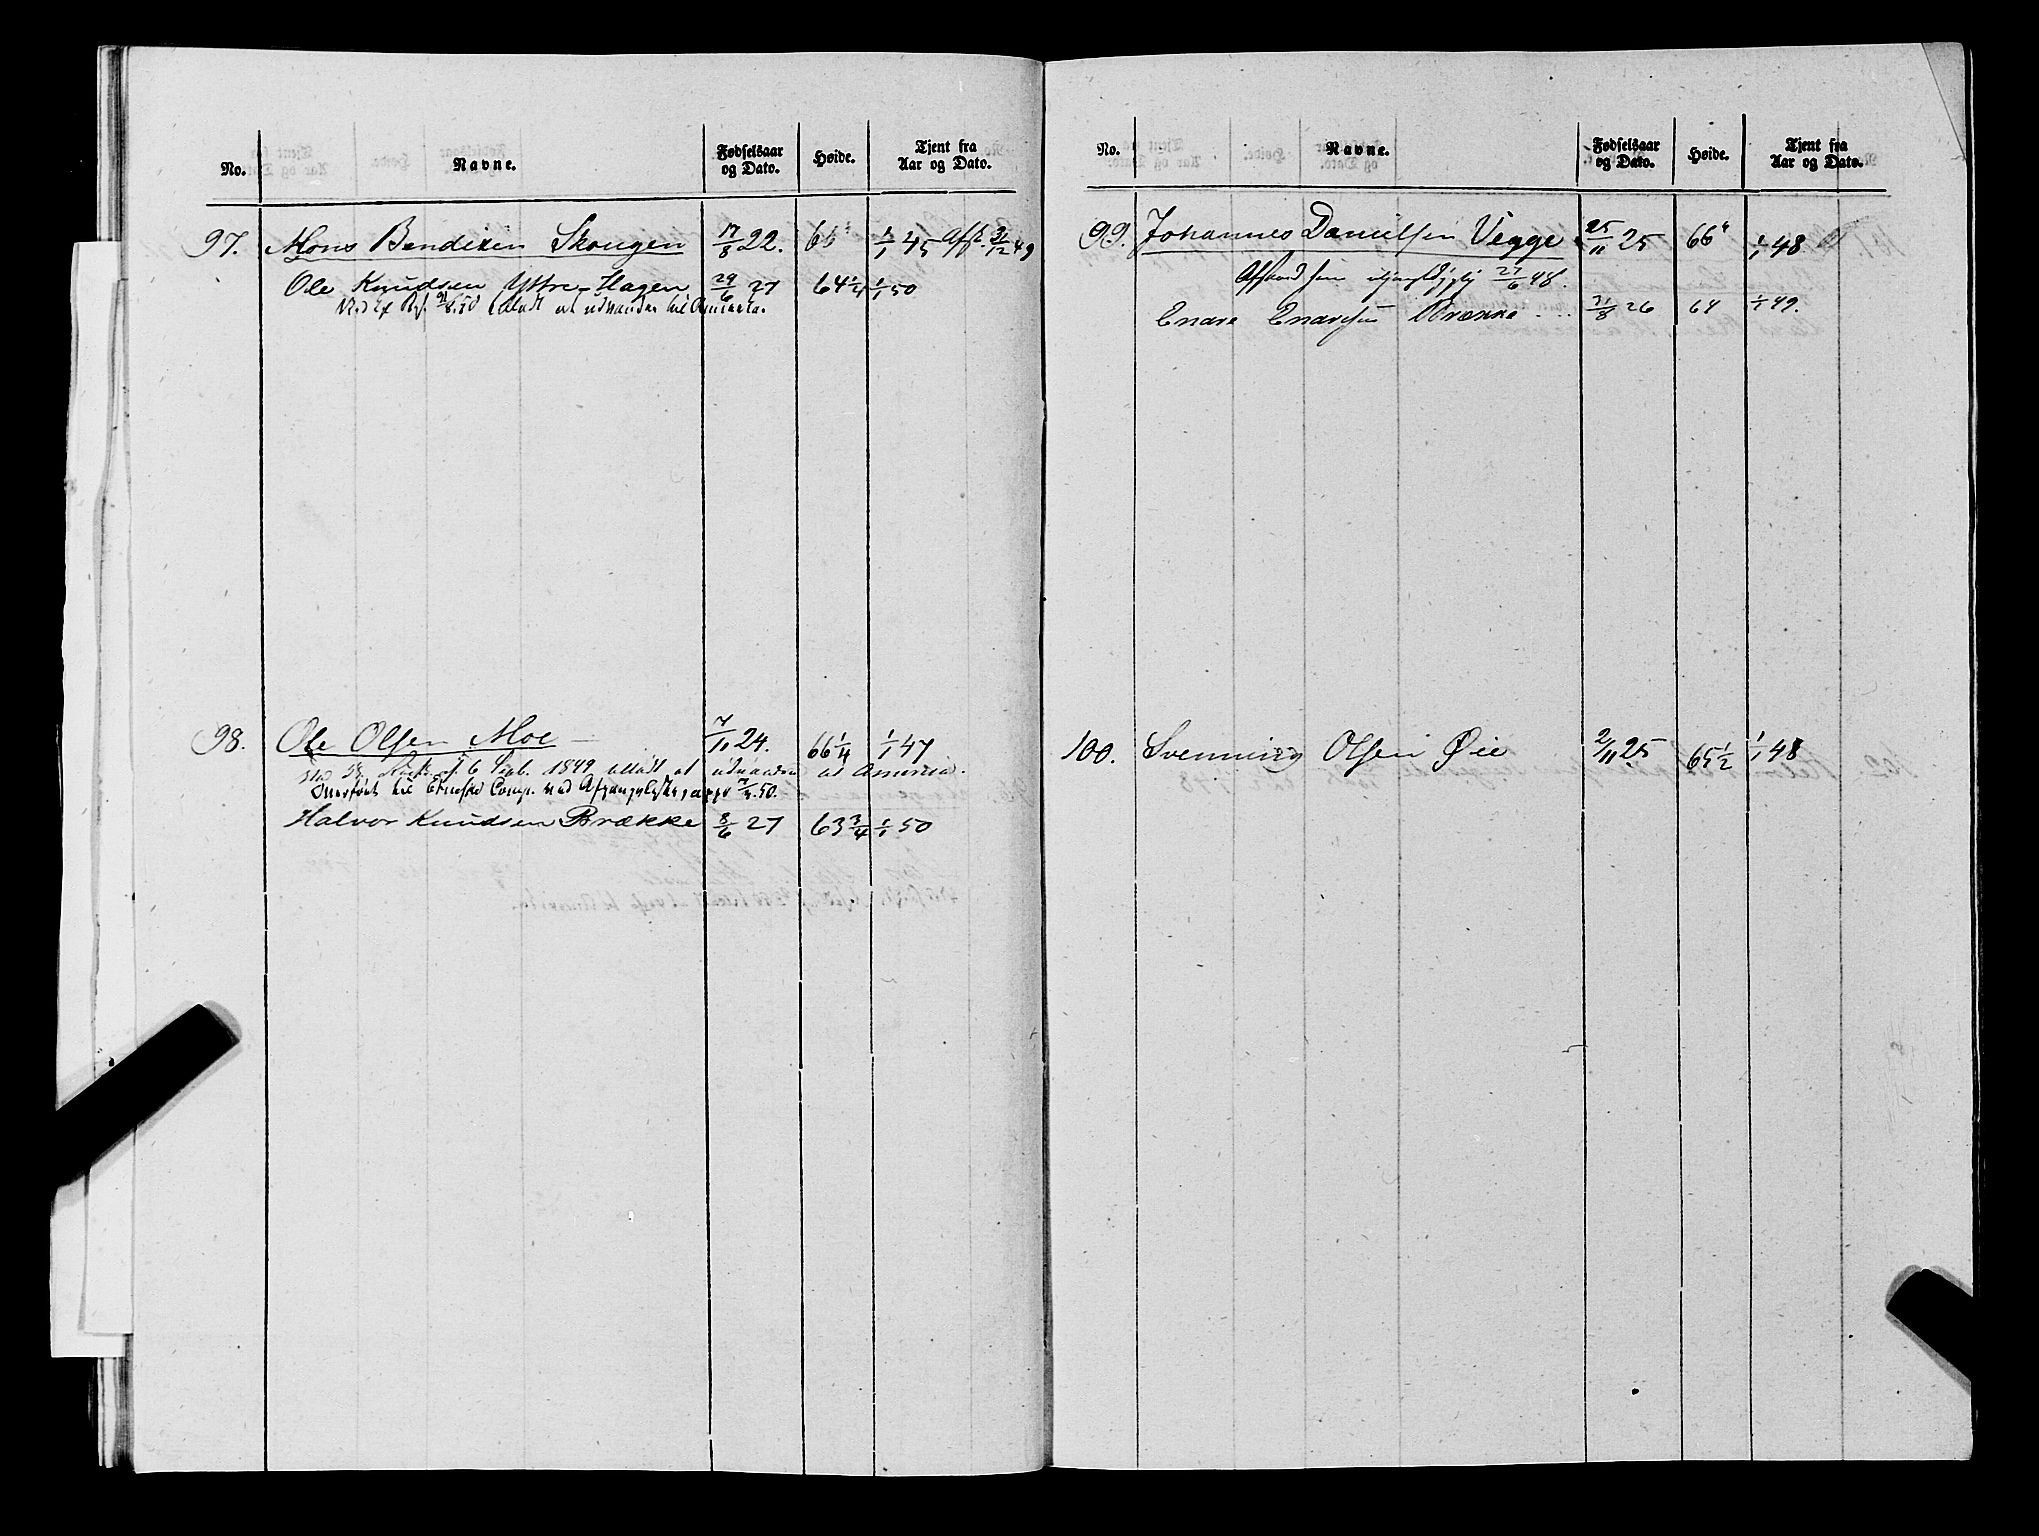 No. Navne. Fødselsaar og Dato. Høide. Tjent fra Aar og Dato.
97. Mons Bendixen Skougen 17/8 22. 66" 1/1 45 Afsk. 31/12 49
Ole Knudsen Yttre-Hagen 29/6 27 64 1/4 1/1 50
tilladt at udvandre til Amerika.
98. Ole Olsen Moe 7/11 24. 66 1/4 1/1 47
6 Sept. 1849 tilladt at udvandre at Amerika.
Overført til Etnedal Comp. med Afgangsliste 50.
Halvor Knudsen Brække 8/6 27 63 3/4 1/1 50
No. Navne. Fødselsaar og Dato. Høide. Tjent fra Aar og Dato.
99. Johannes Danielsen Vigge 25/11 25 66" 1/1 48
Afskeed som utjenstdygtig 27/6 48.
Enare Enaresen Brække 31/8 26 64 1/1 49.
100. Svenning Olsen Øie 2/11 25 65 1/2 1/1 48